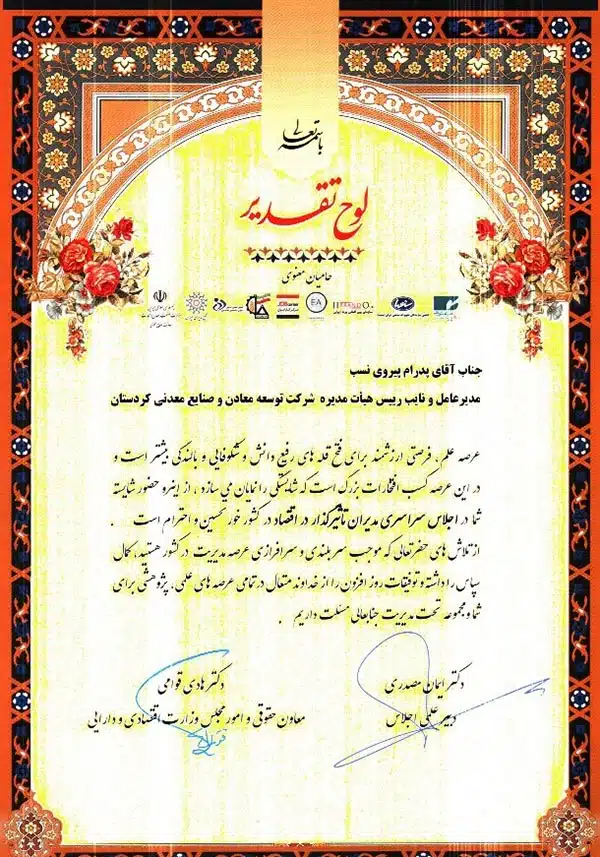 باسمه تعالی
لوح تقدیر
حامیان معنوی
EA
جناب آقای پدرام پیروی نسب
مدیرعامل و نایب رییس هیأت مدیره شرکت توسعه معادن و صنایع معدنی کردستان
عرصه علم ، فرصتی ارزشمند برای فتح قله های رفیع دانش و شکوفایی و بالندگی بیشتر است و
در این عرصه کسب افتخارات بزرگ است که شایستگی را نمایان می سازد ، از اینرو حضور شایسته
شما در اجلاس سراسری مدیران تأثیرگذار در اقتصاد در کشور خور تحسین و احترام است .
از تلاش های حضرتعالی که موجب سربلندی و سرافرازی عرصه مدیریت در کشور هستید، کمال
سپاس را داشته و توفیقات روز افزون را از خداوند متعال در تمامی عرصه های علمی، پژوهشی برای
شما و مجموعه تحت مدیریت جنابعالی مسئلت داریم .
دکتر ایمان مصدری
دبیر علمی اجلاس
دکتر هادی قوامی
معاون حقوقی و امور مجلس وزارت اقتصادی و دارایی